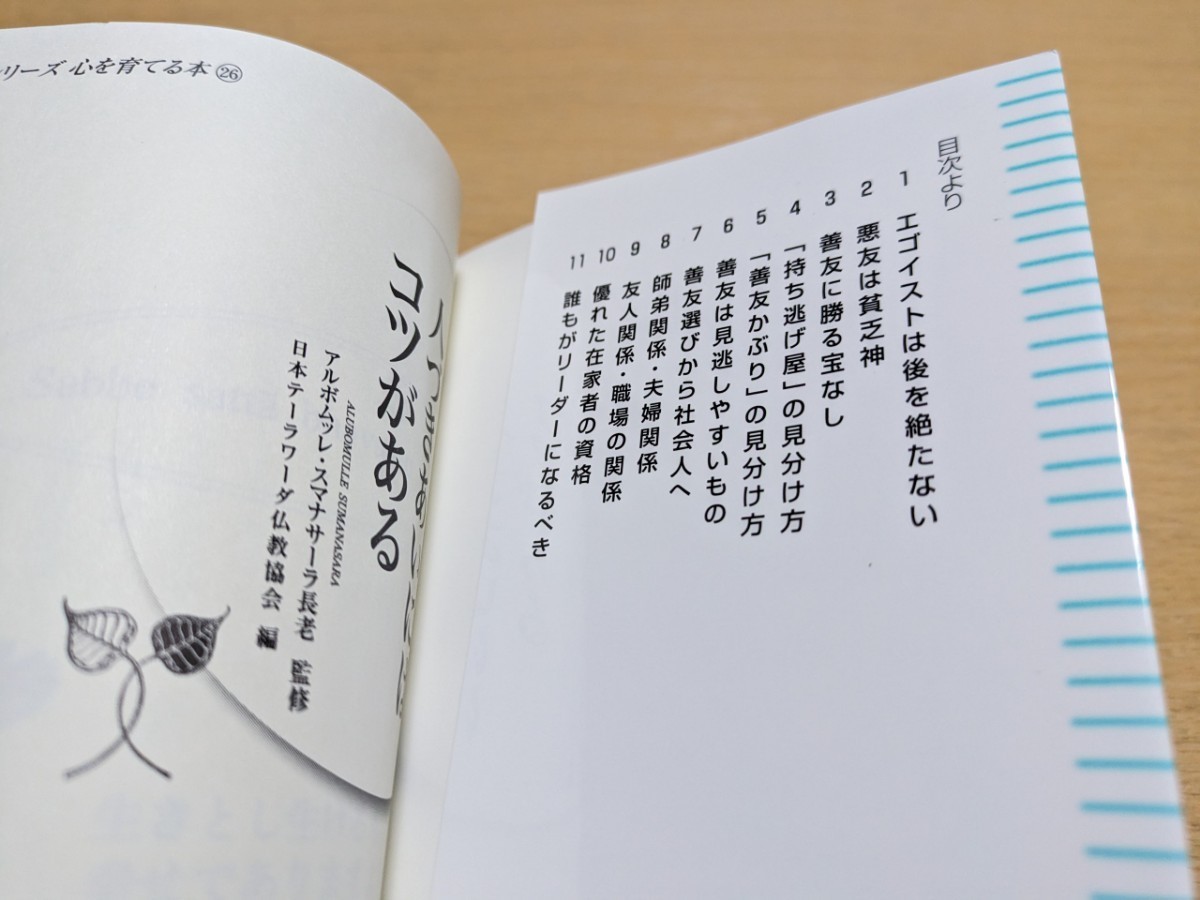 リーズ 心を育てる本 ㉖
人づきあいには
コツがある
ALUBOMULLE SUMANASARA
アルボムッレ・スマナサーラ長老 監修
日本テーラワーダ仏教協会 編
目次より
1 エゴイストは後を絶たない
2 悪友は貧乏神
3 善友に勝る宝なし
4 「持ち逃げ屋」の見分け方
5 「善友かぶり」の見分け方
6 善友は見逃しやすいもの
7 善友選びから社会人へ
8 師弟関係・夫婦関係
9 友人関係・職場の関係
10 優れた在家者の資格
11 誰もがリーダーになるべき